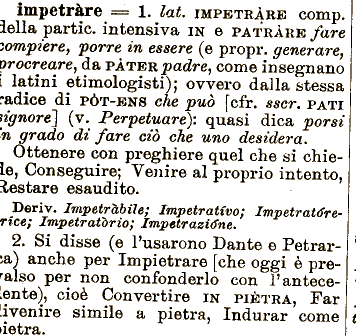 impetràre = 1. lat. IMPETRÀRE comp.
della partic. intensiva IN e PATRÀRE fare
compiere, porre in essere (e propr. generare,
procreare, da PÀTER padre, come insegnano
i latini etimologisti); ovvero dalla stessa
radice di PÒT-ENS che può [cfr. sscr. PATI
signore] (v. Perpetuare): quasi dica porsi
in grado di fare ciò che uno desidera.
Ottenere con preghiere quel che si chie-
de, Conseguire; Venire al proprio intento,
Restare esaudito.
Deriv. Impetràbile; Impetratívo; Impetratóre-
rice; Impetratòrio; Impetrazióne.
2. Si disse (e l'usarono Dante e Petrar-
ca) anche per Impietrare [che oggi è pre-
valso per non confonderlo con l'antece-
dente), cioè Convertire IN PIÈTRA, Far
divenire simile a pietra, Indurar come
pietra.